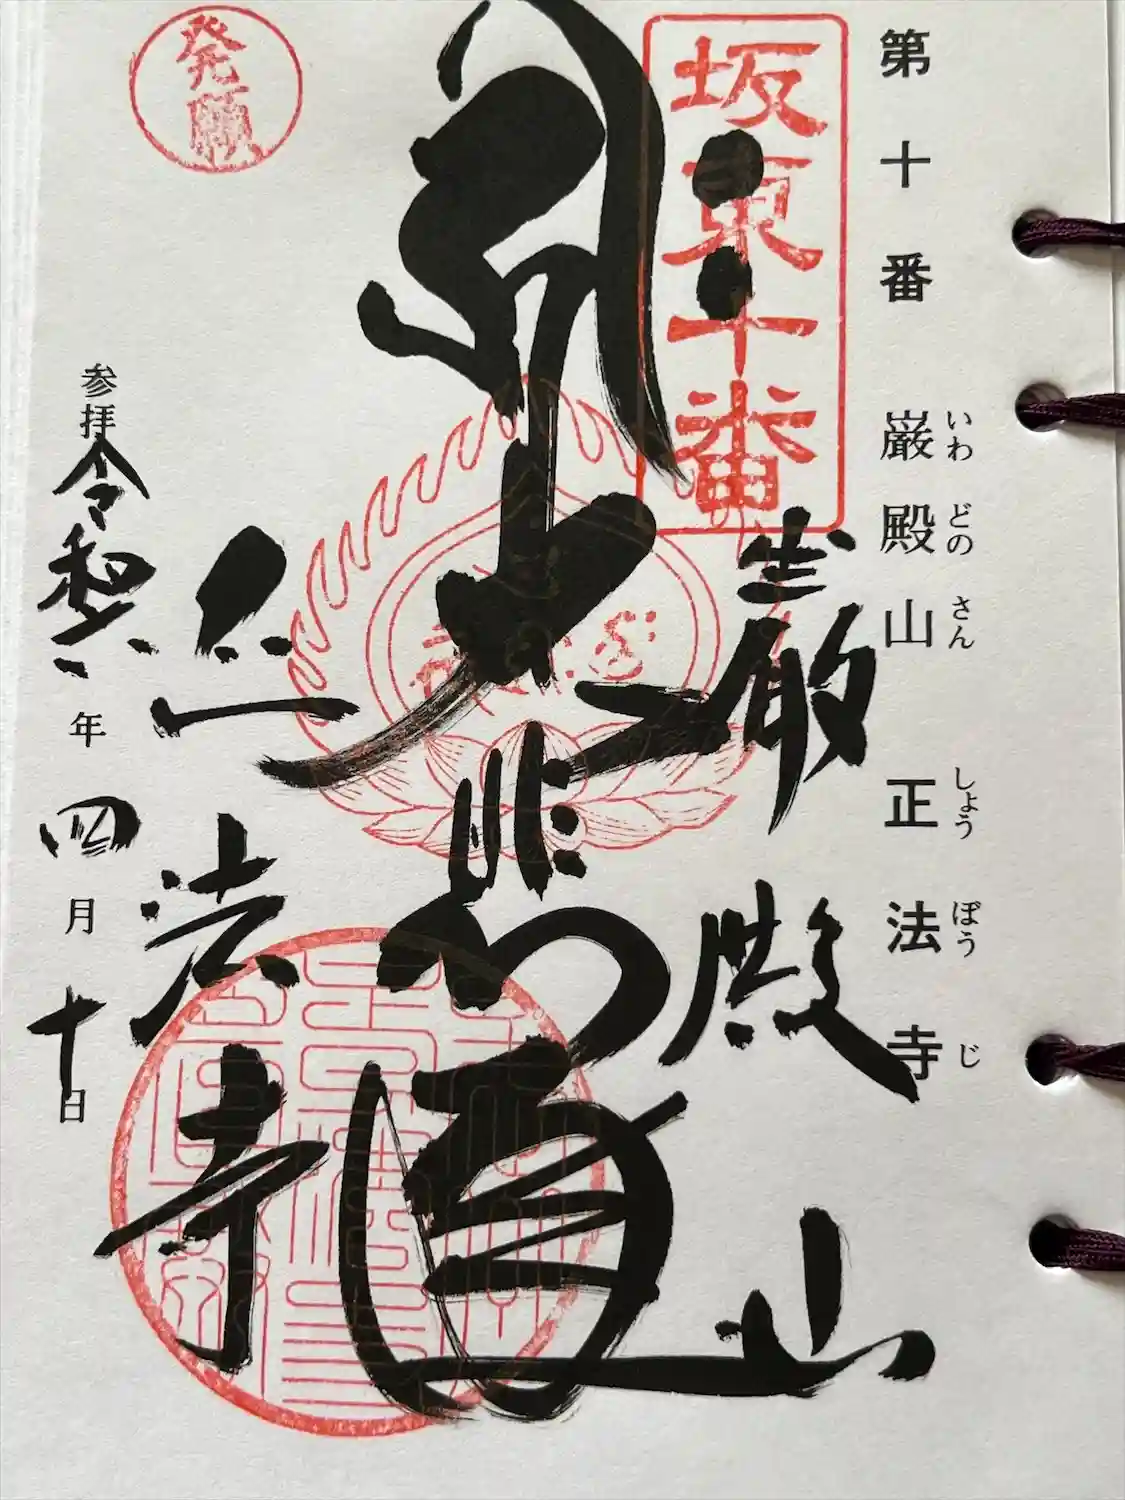 第十番 巌殿山 正法寺
いわ どの さん しょう ぼう じ
坂東十番
巌殿山
大悲
正法寺
発願
参拝 令和六年四月十日